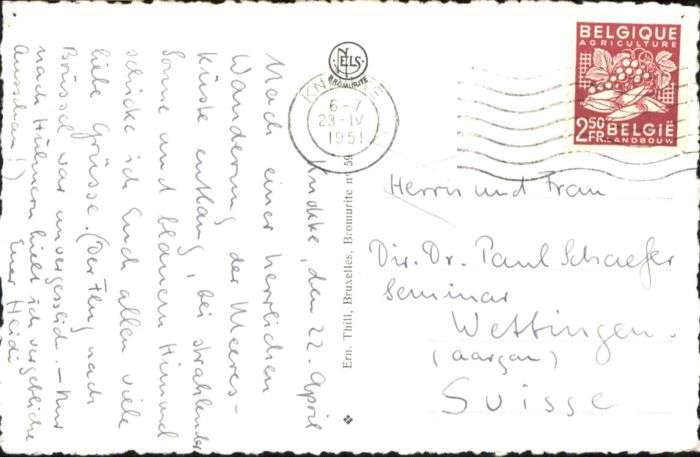 Knokke, den 22. April
Nach einer herrlichen
Wanderung der Meeres-
küste entlang, bei strahlender
Sonne und blauem Himmel
schicke ich Euch allen viele
liebe Grüsse. (Der Flug nach
Brüssel war unvergesslich. – Nur
nach Hühnern hielt ich vergebliche
Ausschau!)
Euer Heidi
NELS
BROMURITE
6-7
23-IV
1951
Ern. Thill, Bruxelles, Bromurite
BELGIQUE
AGRICULTURE
2,50
FR. BELGIË
LANDBOUW
Herrn und Frau
Dir. Dr. Paul Schaefer
Seminar
Wettingen.
(Aargau)
Suisse